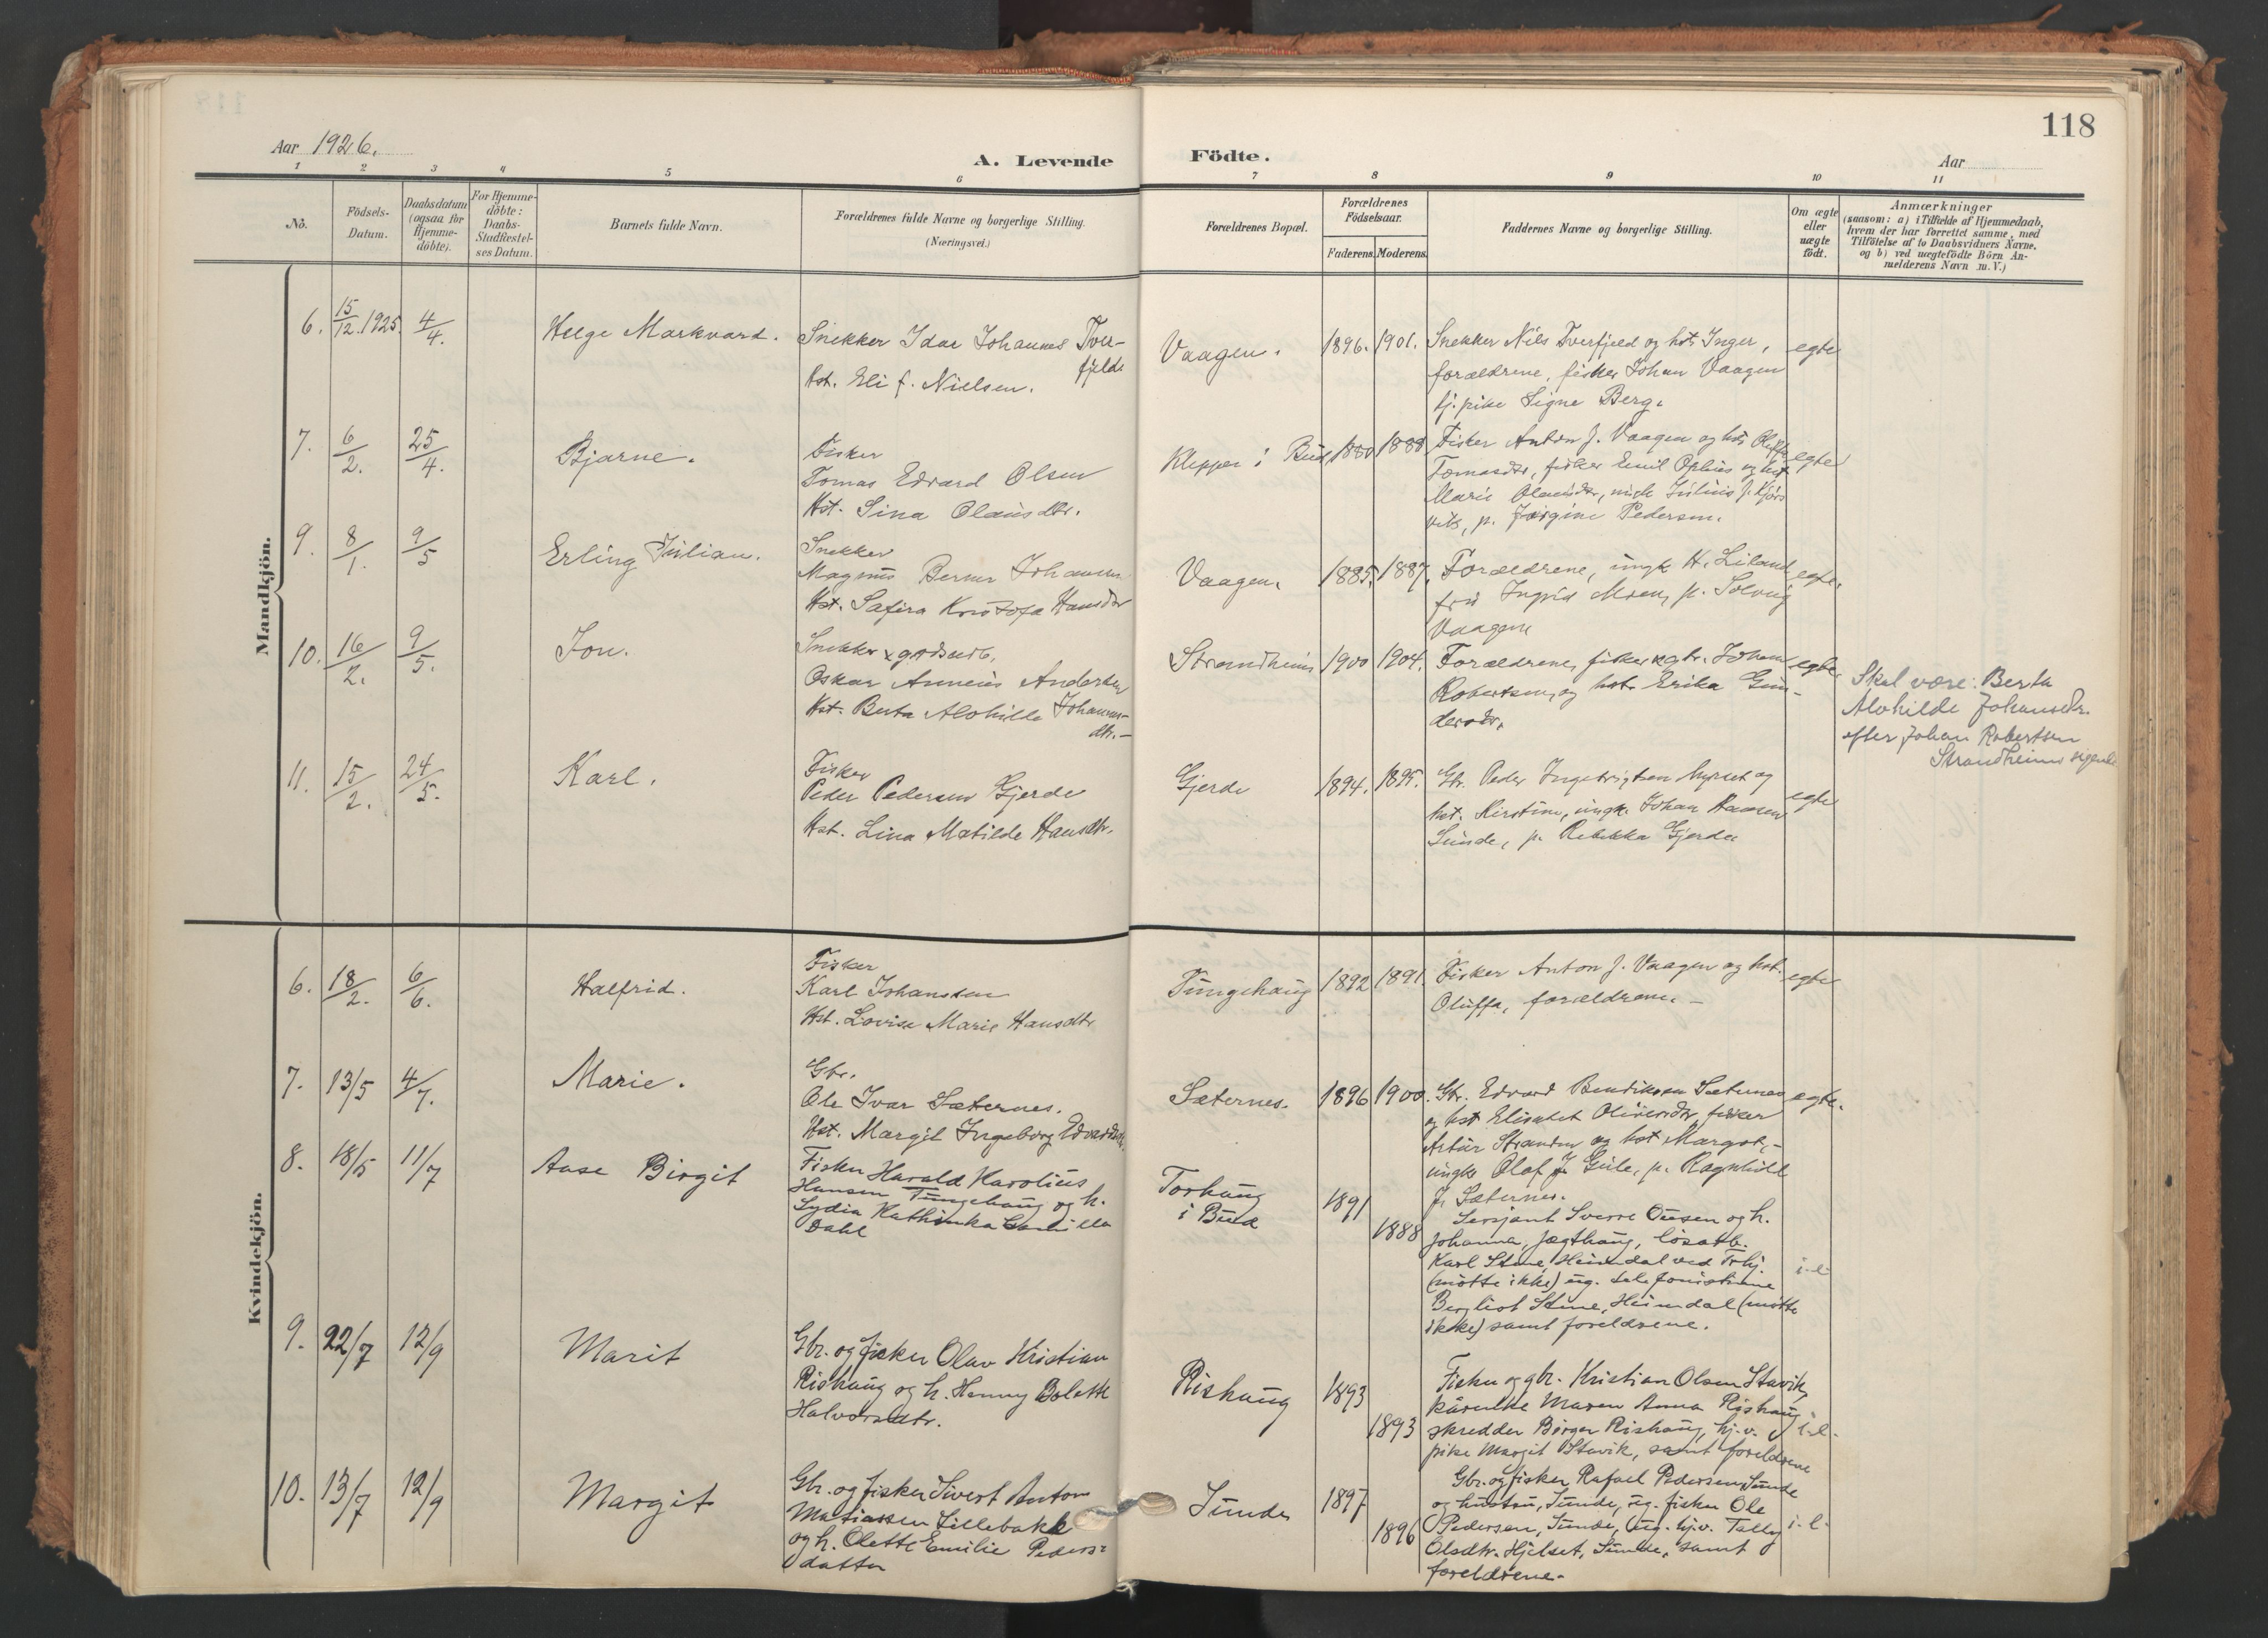 118
Aar 1926.
A. Levende Födte.
Aar
1 2 3 4 5 6 7 8 9 10 11
No.
Födsels-
Datum.
Daabsdatum
(ogsaa for
Hjemme-
döbte).
For Hjemme-
döbte:
Daabs-
Stadfæstel-
ses Datum.
Barnets fulde Navn.
Forældrenes fulde Navne og borgerlige Stilling.
(Næringsvei.)
Forældrenes Bopæl.
Forældrenes
Födselsaar.
Faderens. Moderens.
Faddernes Navne og borgerlige Stilling.
Om ægte
eller
uægte
födt.
Anmærkninger
(saasom: a) i Tilfælde af Hjemmedaab,
hvem der har forrettet samme, med
Tilföielse af to Daabsvidners Navne,
og b) ved uægtefödte Börn An-
melderens Navn m. V.)
Mandkjön.
6. 15/12. 1925. 4/4.
Helge Markvard.
Snekker Idar Johannes Tver-
fjelde
Hst. Eli f. Nielsen.
Vaagen. 1896. 1901.
Snekker Nils Tverfjeld og hst. Inger,
forældrene, fisker Johan Vaagen
tj. pike Signe Berg.
egte
7. 6/2. 25/4.
Bjarne.
Fisker
Tomas Edvard Olsen
Hst. Sina Olausdtr.
Klepper i Bud, 1880 1888
Fisker Anton J. Vaagen og hst. Oluffa
Tomasdtr, fisker Emil og hst
Marie Olausdtr, Julius J. Kjørs
vik, p. Jørgine Pedersen.
egte
9. 8/1. 9/5
Erling Julian.
Snekker
Magnus Berner Johansen
Hst. Safira Kristofa Hansdtr
Vaagen. 1885. 1887.
Forældrene, ungk H. Liland
fru Ingrid Moen, p. Solveig
Vaagen
egte.
10. 16/2. 9/5.
Jon.
Snekker & gardsarb.
Oskar Anneus Andersen
Hst. Berta Alvhilde Johannes-
dtr.-
Strandheim 1900 1904.
Forældrene, fisker & gbr. Johan
Robertsen, og hst. Erika Gun-
dersdtr.
egte
Skal være: Berta
Alvhilde Johansdtr.
efter Johan Robertsen
Strandheims sigende
11. 15/2. 24/5.
Karl.
Fisker
Peder Pedersen Gjerde
Hst. Lina Matilde Hansdtr.
Gjerde 1894. 1895.
Gbr. Peder Ingebrigtsen og
hst. Kirstine, ungk. Johan Hansen
Sunde, p. Rebekka Gjerde
egte
Kvindekjön.
6. 18/2. 6/6.
Halfrid.
Fisker
Karl Johansen
Hst. Lovise Marie Hansdtr
Tungehaug 1892 1891.
Fisker Anton J. Vaagen og hst.
Oluffa, forældrene. -
egte
7. 13/5 4/7.
Marie.
Gbr.
Ole Ivar Sæternes.
Hst. Margit Ingeborg Edvardsdtr.
Sæternes. 1896 1900.
Gbr. Edvard Bendiksen Sæternes
og hst Elisabet Oliversdtr, fisker
Artur Stranden og hst Margot, -
ungk Olaf J. Gule, p. Ragnhild
J. Sæternes.
egte.
8. 18/5 11/7
Aase Birgit
Fisker Harald Karolius
Hansen Tungehaug og h.
Lydia Kathinka Camilla
Dahl
Torhaug
i Bud
1891 1888
Sersjant Sverre Ousen og h.
Johanna, Jægthaug, lösarb.
Karl Stene, Heimdal ved Trhj.
(mötte ikke) ug. telefonistinne
Bergliot Stene, Heimdal (mötte
ikke) samt foreldrene.
i-l-
9. 22/7 12/9
Marit
Gbr. og fisker Olav Kristian
Rishaug og h. Henny Bolette
Halvorsdtr.
Rishaug 1893 1893
Fisker og gbr. Kristian Olsen Stavik,
kårenke Maren Anna Rishaug,
skredder Börger Rishaug, hj.v.
pike Margit Stavik, samt foreldrene
i-l-
10. 13/7 12/9
Margit
Gbr. og fisker Sivert Anton
Matiassen Lillebakk
og h. Olette Emilie Peders-
datter
Sunde 1897 1896
Gbr. og fisker Rafael Pedersen Sunde
og hustru, Sunde, ug. fisker Ole
Pedersen, Sunde, ug. hj.v. Tally
Olsdtr. Hjelset, Sunde, samt
foreldrene.
i-l-